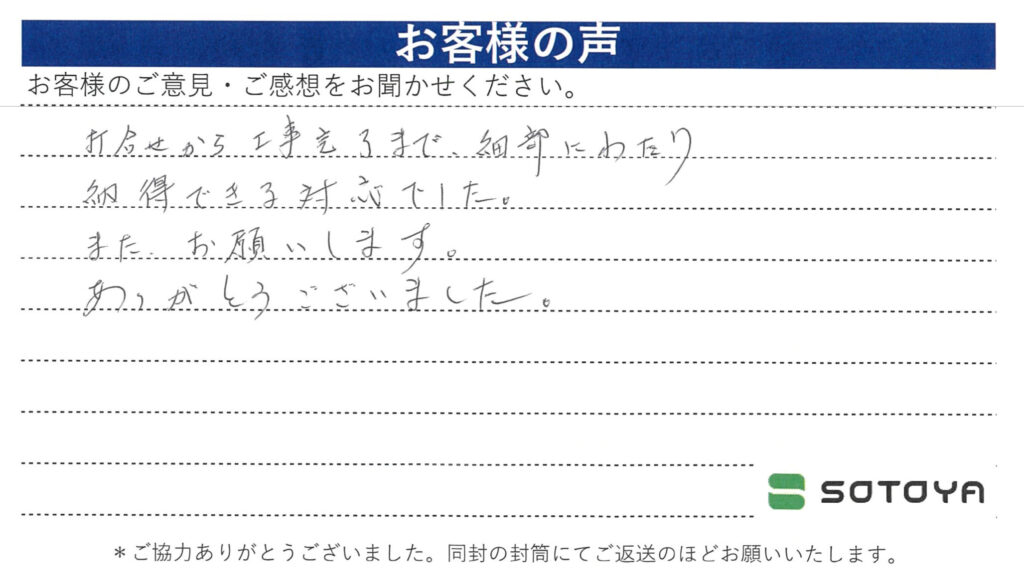 お客様の声
お客様のご意見・ご感想をお聞かせください。
打合せから工事完了まで、細部にわたり
納得できる対応でした。
また、お願いします。
ありがとうございました。
SOTOYA
＊ご協力ありがとうございました。同封の封筒にてご返送のほどお願いいたします。